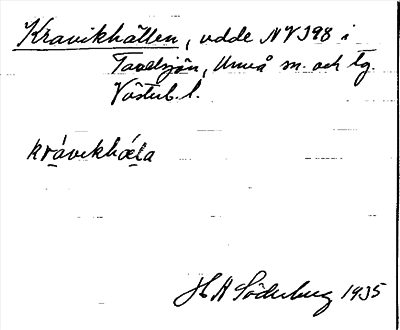 Kravikhällen, udde NV398 i
Tavelsjön, Umeå sn. och tg.
Västerb. l.
krávikhǽla
H A Söderberg 1935